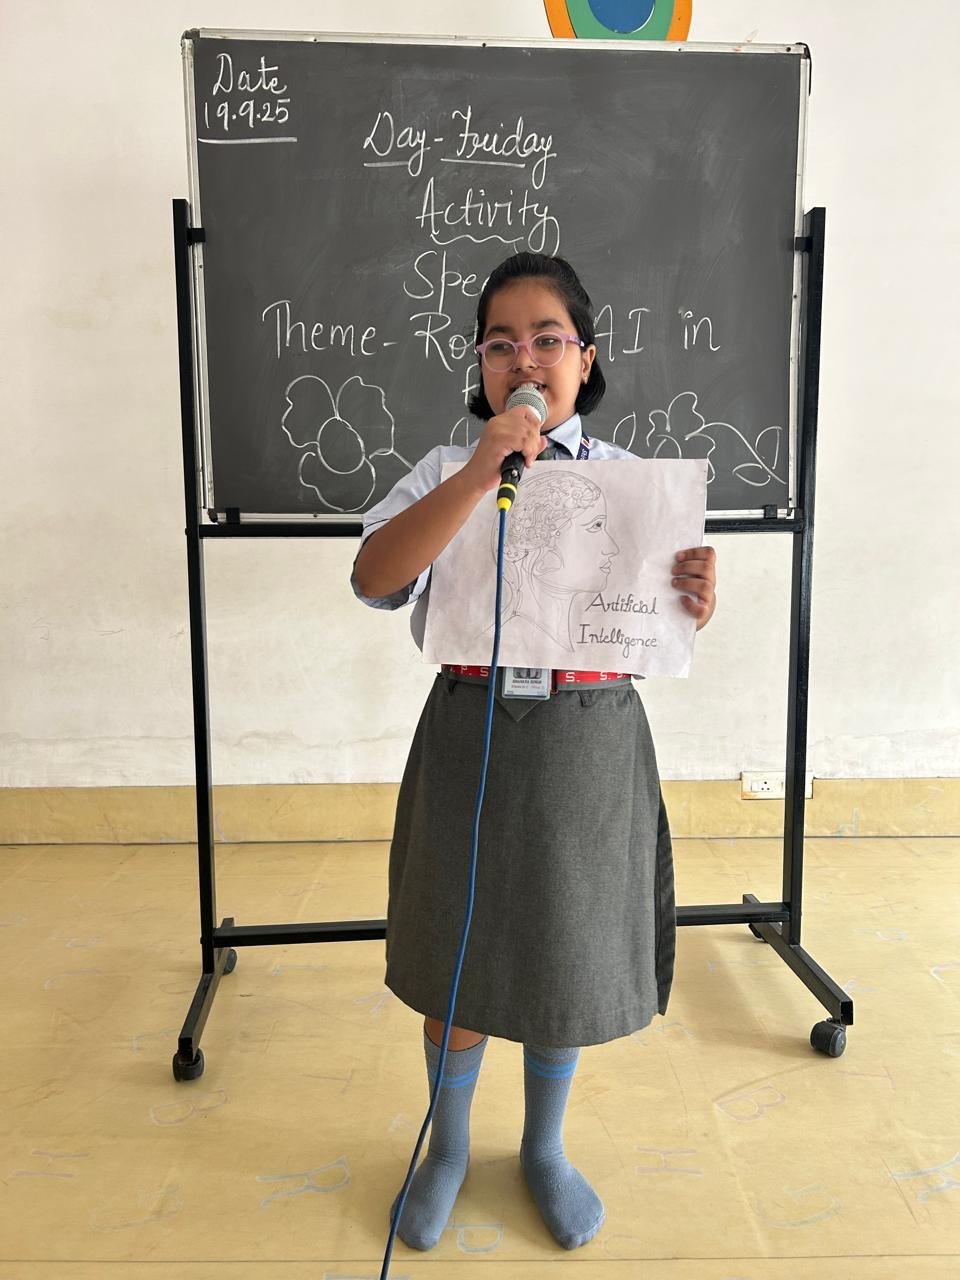 Date
19.9.25
Day-Friday
Activity
Theme- AI in
Artificial
Intelligence
P. S. S. S.